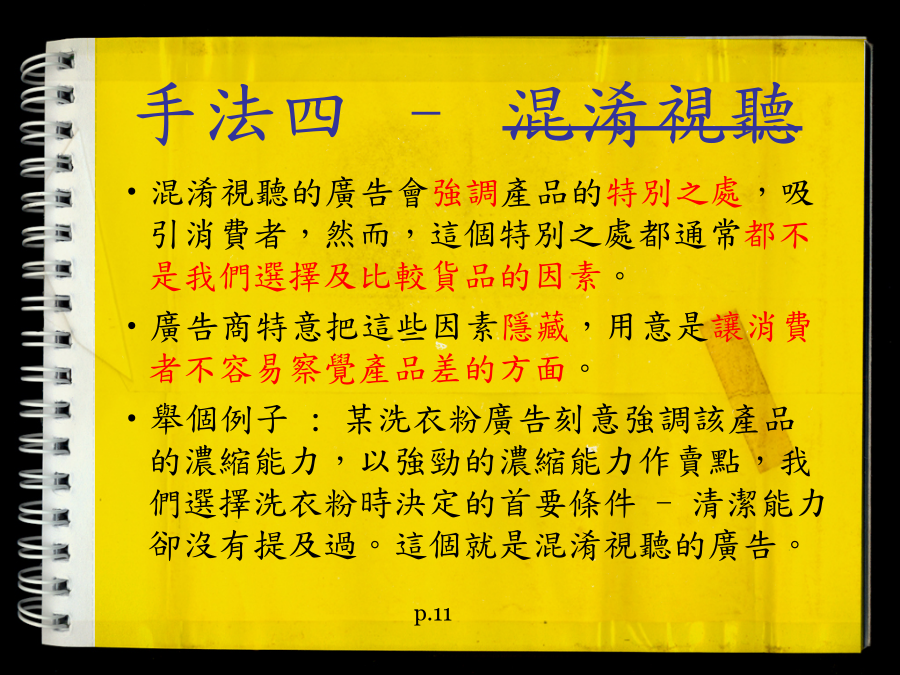 手法四 － 混淆視聽
• 混淆視聽的廣告會強調產品的特別之處，吸
引消費者，然而，這個特別之處都通常都不
是我們選擇及比較貨品的因素。
• 廣告商特意把這些因素隱藏，用意是讓消費
者不容易察覺產品差的方面。
• 舉個例子 ： 某洗衣粉廣告刻意強調該產品
的濃縮能力，以強勁的濃縮能力作賣點，我
們選擇洗衣粉時決定的首要條件 － 清潔能力
卻沒有提及過。這個就是混淆視聽的廣告。
p.11